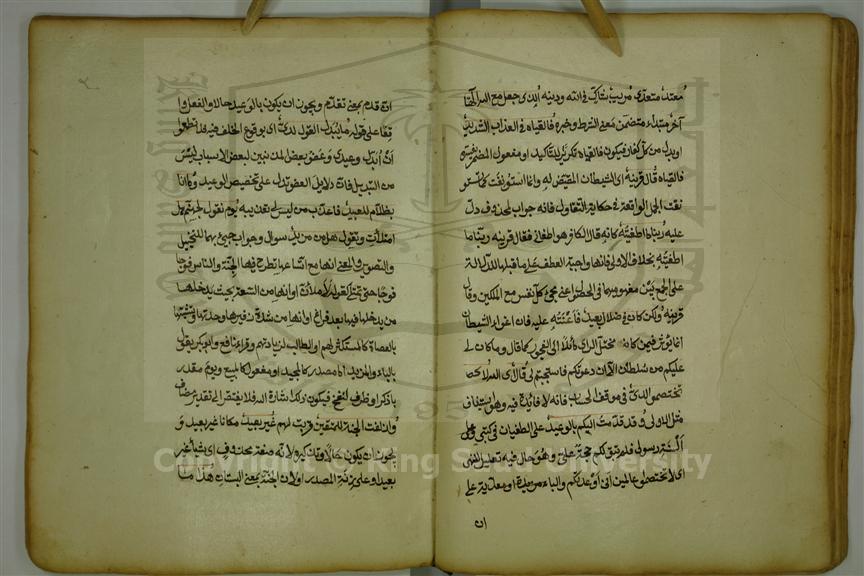 مُعتدٍ متعدّي مُريبٍ شاكّ في الله ودينه الذي جعل مع الله الٰهًا
آخر مبتداء متضمن معنى الشرط وخبره فالقياه في العذاب الشديد
او بدل من كل كفار فيكون فالقياه تكريرًا للتاكيد او مفعول لمضمر يفسره
فالقياه قال قرينه اي الشيطان المقيض له وانما استونفت كما تستانف
الجمل الواقعة في حكاية التقاول فانه جواب لمحذوف دلّ
عليه ربنا ما اطغيته كانه قال الكافر هو اطغاني فقال قرينه ربنا ما
اطغيته بخلاف الاولى فانها واجبة العطف على ما قبلها للدلالة
على الجمع بين مفهوميهما في الحصول اعني مجئ كل نفس مع الملكين وقال
قرينه ولكن كان في ضلال بعيد فاعنته عليه فان اغواء الشيطان
انما يوثر فيمن كان مختل الراي مائلا الى الفجور كما قال وما كان لي
عليكم من سلطان الا ان دعوتكم فاستجبتم لي قال اي الله لا
تختصموا لدي في موقف الحساب فانه لا فائدة فيه وهو استيناف
مثل الاول وقد قدمت اليكم بالوعيد على الطغيان في كتبي وعلى
السنة رسلي فلم تبق لكم حجة علي وهو حال فيه تعليل للنهي
اي لا تختصموا عالمين اني اوعدتكم والباء مزيدة او معدية على
ان
انه قدم بمعنى تقدم ويجوز ان يكون بالوعيد حالا والفعل وا
قعا على قوله ما يبدل القول لدي اي بوقوع الخلف فيه فلا تطمعوا
ان ابدل وعيدي وعفو بعض المذنبين لبعض الاسباب ليس
من التبديل فان دلايل العفو تدل على تخصيص الوعيد وما انا
بظلام للعبيد فاعذب من ليس لي تعذيبه يوم نقول لجهنم هل
امتلات وتقول هل من مزيد سوال وجواب جئ بهما للتخييل
والتصوير والمعنى انها مع اتساعها تطرح فيها الجنة والناس فوجا
فوجا حتى تمتلئ لقوله لاملان او انها من السعة بحيث يدخلها
من يدخلها وفيها بعد فراغ او انها من شدة زفيرها وحدتها وتشبثها
بالعصاة كالمستكثر لهم والطالب لزيادتهم وقراء نافع وابوبكر يقول
بالياء والمزيد اما مصدر كالمحيد او مفعول كالمبيع ويوم مقدر
باذكر او ظرف لنفخ فيكون ذلك اشارة اليه فلا يفتقر الى تقدير مضاف
وازلفت الجنة للمتقين قربت لهم غير بعيد مكانا غير بعيد و
يجوز ان يكون حالا وتذكيره لانه صفة محذوف اي شيا غير
بعيد او على زنة المصدر او لان الجنة بمعنى البستان هذا ما
Copyright © King Saud University
195